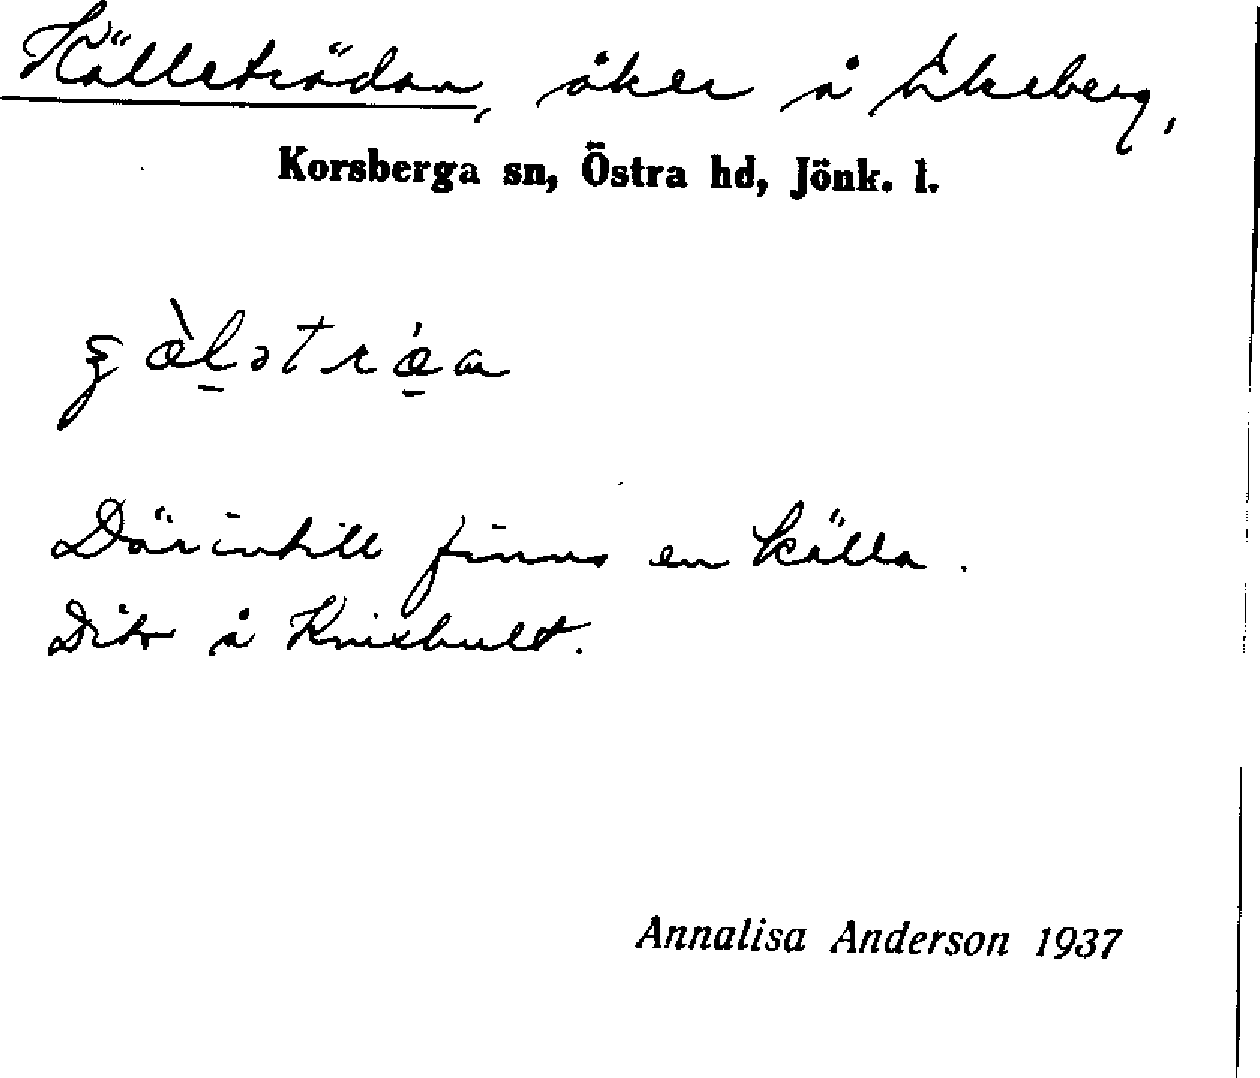 Källeträdan, åker å Ekeberg,
Korsberga sn, Östra hd, Jönk. l.
Därintill finns en källa.
Dito å Knixhult.
Annalisa Anderson 1937